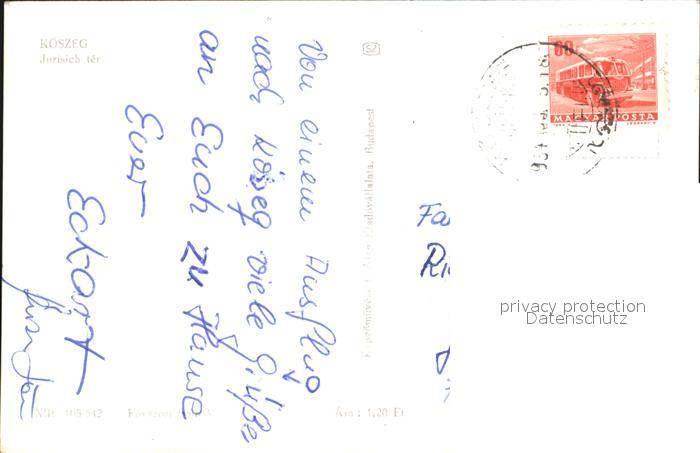 KŐSZEG
Jurisich tér
Von einem Ausflug
nach Köszeg viele Grüße
an Euch zu Hause
Euer
Eckart
60
MAGYAR POSTA
Fa
Ri
privacy protection
Datenschutz
Kiadóvállalata, Budapest
Ára: 1,20 Ft